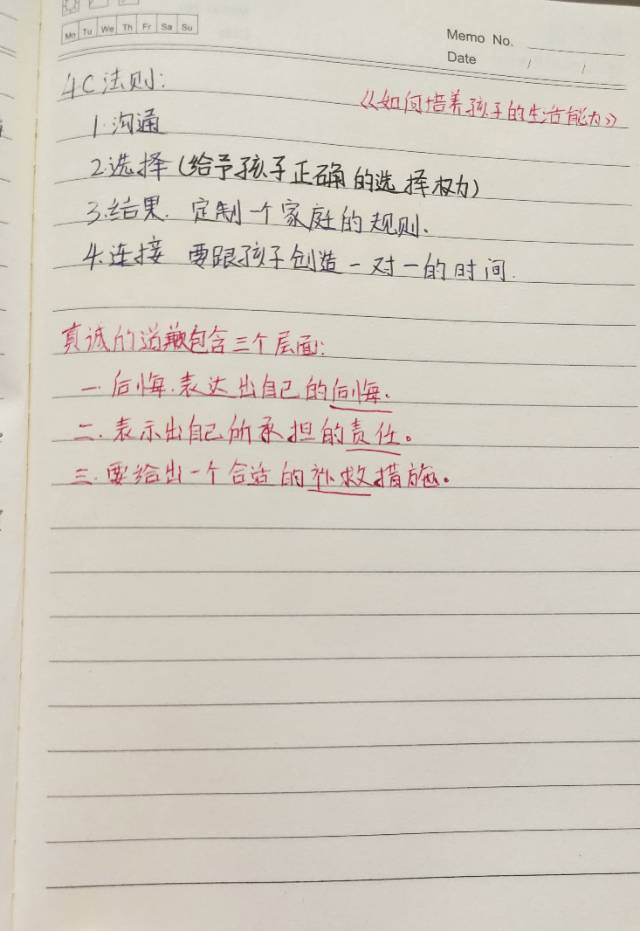 Mo Tu We Th Fr Sa Su
Memo No.
Date / /
4C法则:
《如何培养孩子的生活能力》
1.沟通
2.选择(给予孩子正确的选择权力)
3.结果. 定制一个家庭的规则.
4.连接 要跟孩子创造一对一的时间.
真诚的道歉包含三个层面:
一.后悔.表达出自己的后悔.
二.表示出自己所承担的责任。
三.要给出一个合适的补救措施。